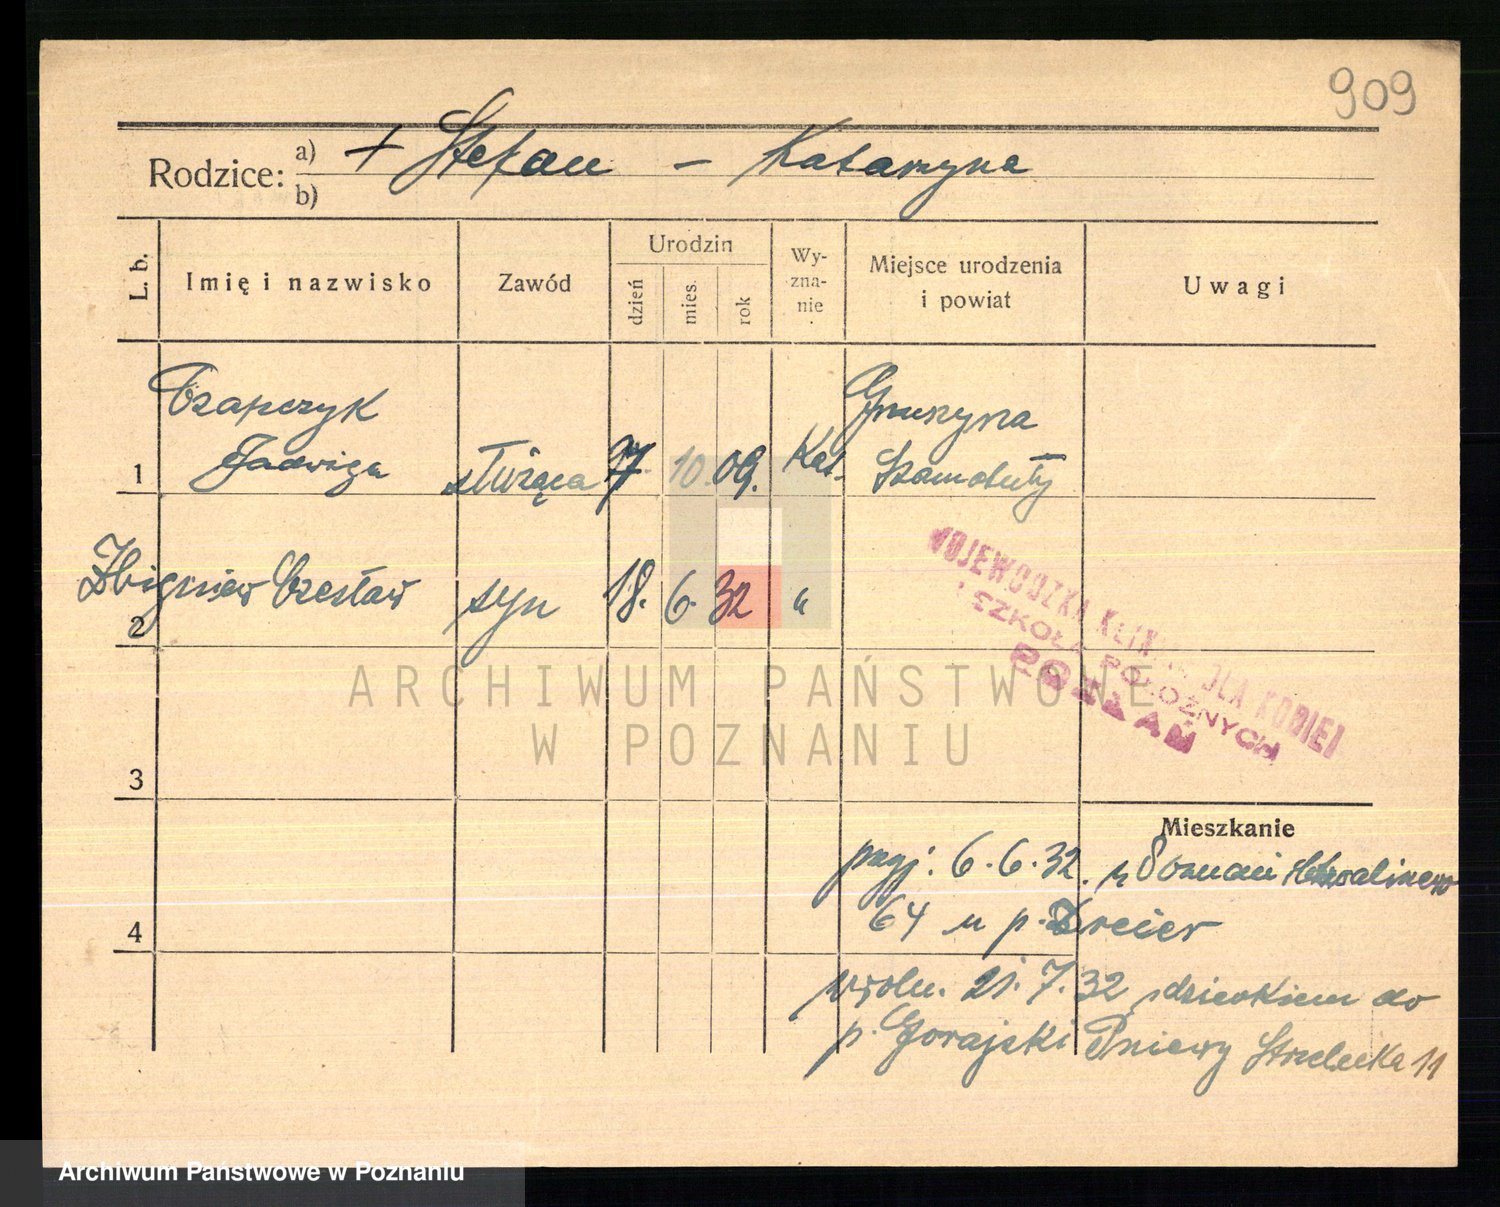 909
Rodzice: a) + Stefan - Katarzyna
b)
L. b.
Imię i nazwisko
Zawód
Urodzin
dzień
mies.
rok
Wy-
zna-
nie
Miejsce urodzenia
i powiat
Uwagi
Czapczyk
Jadwiga
1
służąca
7 10. 09.
Kat.
Szamotuły
Zbigniew Czesław
2
syn
18. 6. 32
"
WOJEWÓDZKA KLINIKA DLA KOBIET
i SZKOŁA POŁOŻNYCH
POZNAŃ
ARCHIWUM PAŃSTWOWE
W POZNANIU
3
Mieszkanie
przyj. 6.6.32. z Poznani
4
64 u p. Dreier
21.7.32 z dzieckiem do
p. Gorajski Pniewy Strzelecka 11
Archiwum Państwowe w Poznaniu